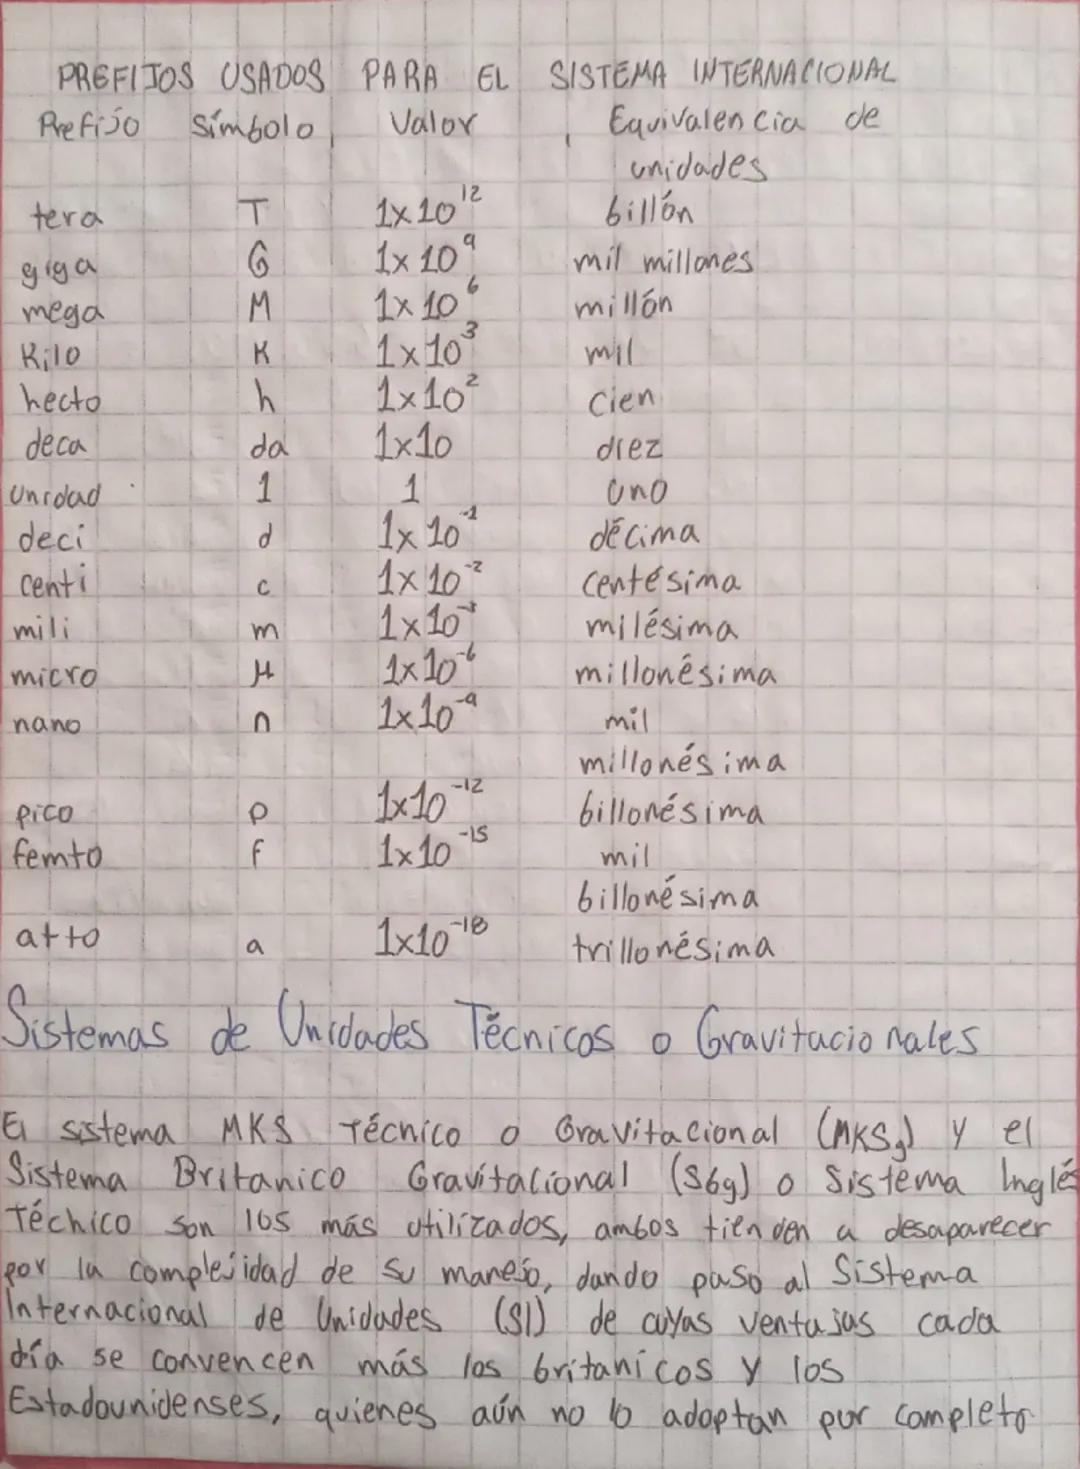 PREFIJOS USADOS PARA EL SISTEMA INTERNACIONAL
Prefijo Símbolo Valor Equivalencia de
unidades
tera T 1x10¹² billón
giga G 1x10⁹ mil millones
mega M 1x10⁶ millón
Kilo K 1x10³ mil
hecto h 1x10² cien
deca da 1x10 diez
unidad 1 1 uno
deci d 1x10⁻¹ décima
centi c 1x10⁻² centésima
mili m 1x10⁻³ milésima
micro μ 1x10⁻⁶ millonésima
nano n 1x10⁻⁹ mil
millonésima
pico p 1x10⁻¹² billonésima
femto f 1x10⁻¹⁵ mil
billonésima
atto a 1x10⁻¹⁸ trillonésima
Sistemas de Unidades Técnicos o Gravitacionales
El sistema MKS Técnico o Gravitacional (MKSg) y el
Sistema Britanico Gravitacional (Sbg) o Sistema Inglés
Téchico son los más utilizados, ambos tienden a desaparecer
por la complejidad de su manejo, dando paso al Sistema
Internacional de Unidades (SI) de cuyas ventajas cada
día se convencen más los britanicos y los
Estadounidenses, quienes aún no lo adoptan por completo